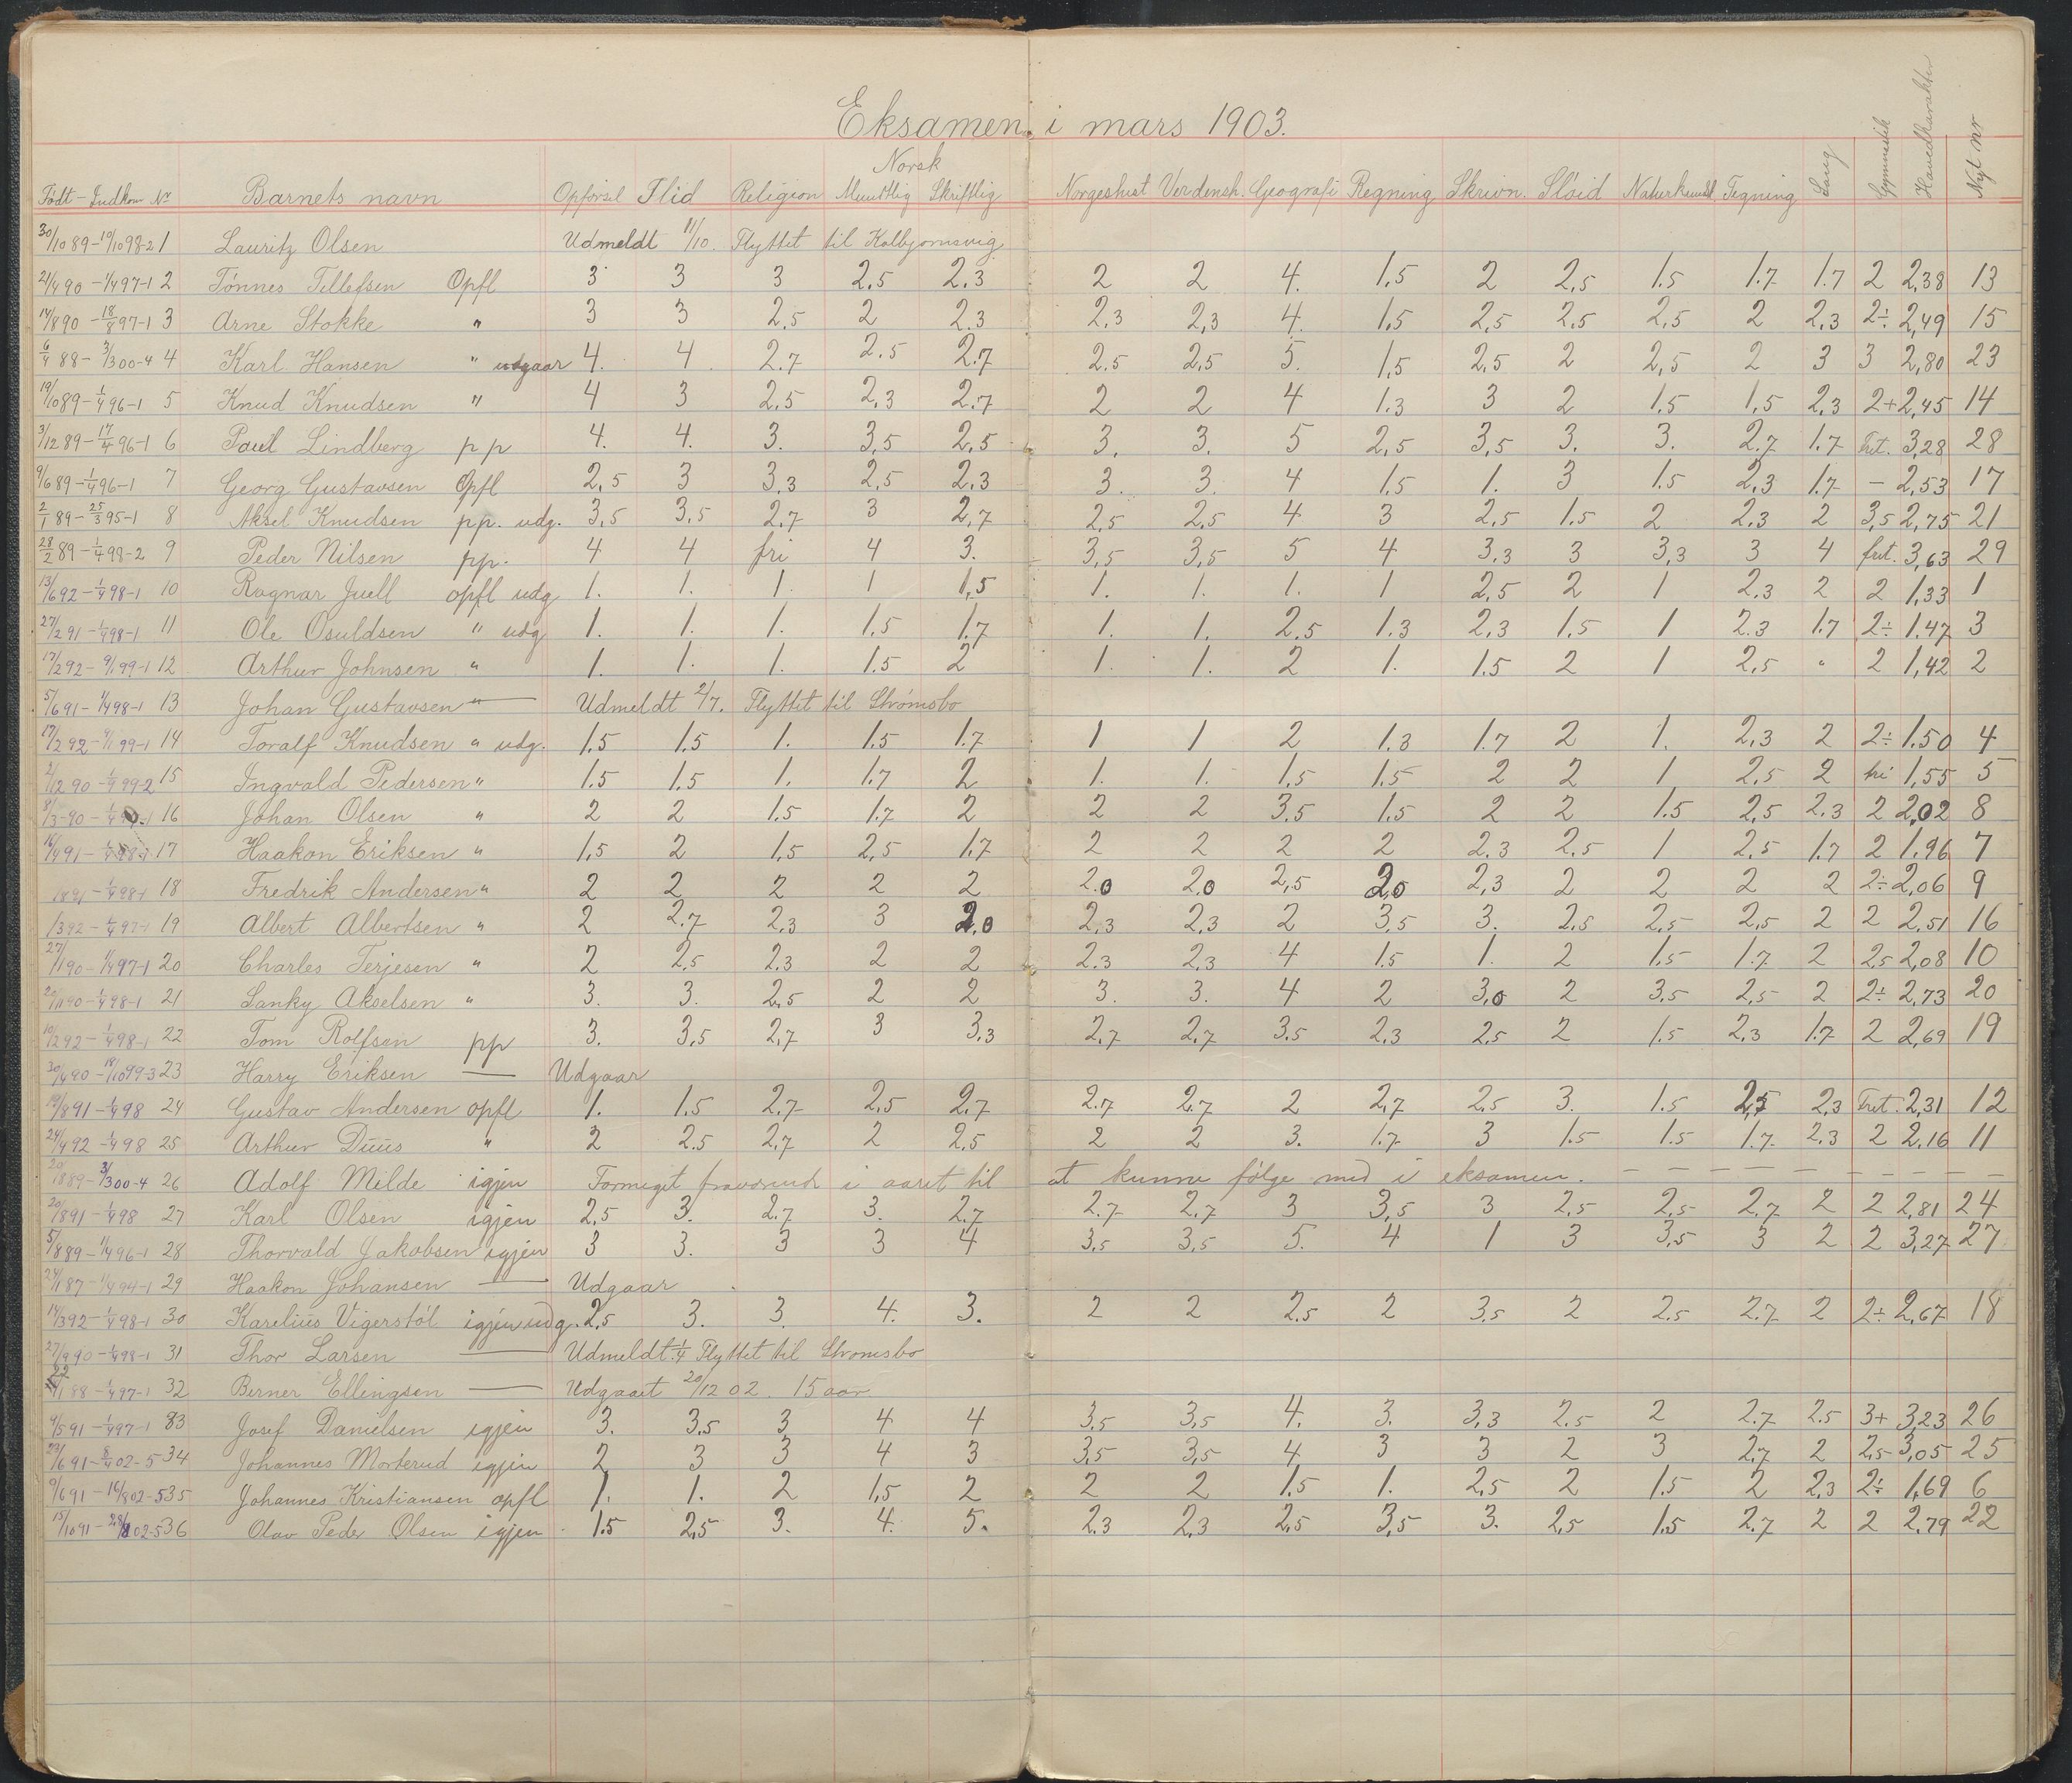 Eksamen i mars 1903.
Norsk
Født - Indkom Nr Barnets navn Opførsel Flid Religion Muntlig Skriftlig Norgeshist Verdensh. Geografi Regning Skrivn. Sløid Naturkundsk. Tegning Sang Gymnastik Hovedkarakter Nyt nr
30/10 89 - 10/10 98-2 1 Lauritz Olsen Udmeldt 11/10. Flyttet til Kolbjørnsvig
21/4 90 - 1/4 97-1 2 Tønnes Tellefsen Opfl 3 3 3 2,5 2.3 2 2 4. 1,5 2 2,5 1.5 1.7 1.7 2 2,38 13
14/8 90 - 18/8 97-1 3 Arne Stokke " 3 3 2.5 2 2.3 2.3 2,3 4 1,5 2,5 2.5 2,5 2 2,3 2÷ 2,49 15
6/4 88 - 3/3 00-4 4 Karl Hansen " udgaar 4. 4 2.7 2.5 2.7 2.5 2,5 5. 1,5 2,5 2 2,5 2 3 3 2,80 23
19/10 89 - 1/4 96-1 5 Knud Knudsen " 4 3 2.5 2,3 2.7 2 2 4 1.3 3 2 1.5 1,5 2,3 2+ 2,45 14
3/12 89 - 17/4 96-1 6 Paul Lindberg pp 4. 4. 3. 3,5 2,5 3. 3. 5 2,5 3,5 3. 3. 2.7 1.7 Frit. 3,28 28
9/6 89 - 1/4 96-1 7 Georg Gustavsen Opfl 2,5 3 3,3 2,5 2,3 3. 3. 4 1.5 1. 3 1.5 2,3 1.7 - 2,53 17
2/1 89 - 25/3 95-1 8 Aksel Knudsen pp. udg. 3,5 3,5 2.7 3 2,7 2,5 2,5 4 3 2,5 1.5 2 2.3 2 3,5 2,75 21
28/2 89 - 1/4 98-2 9 Peder Nilsen pp. 4 4 fri 4 3. 3,5 3,5 5 4 3.3 3 3,3 3 4 frit. 3,63 29
13/6 92 - 1/4 98-1 10 Ragnar Juell opfl udg 1. 1. 1 1 1,5 1. 1. 1. 1 2,5 2 1 2.3 2 2 1,33 1
27/2 91 - 1/4 98-1 11 Ole Osuldsen " udg 1. 1. 1. 1.5 1.7 1. 1. 2.5 1.3 2,3 1.5 1 2.3 1.7 2÷ 1.47 3
17/2 92 - 9/1 99-1 12 Arthur Johnsen " 1. 1. 1. 1.5 2 1. 1. 2 1. 1.5 2 1 2,5 " 2 1,42 2
5/6 91 - 1/4 98-1 13 Johan Gustavsen " Udmeldt 2/7. Flyttet til Strømsbo
17/2 92 - 9/1 99-1 14 Toralf Knudsen " udg. 1.5 1.5 1. 1.5 1.7 1 1 2 1.3 1.7 2 1. 2,3 2 2÷ 1.50 4
2/12 90 - 1/9 99-2 15 Ingvald Pedersen " 1.5 1,5 1. 1.7 2 1. 1. 1,5 1.5 2 2 1 2,5 2 fri 1,55 5
16 Johan Olsen " 2 2 1.5 1.7 2 2 2 3.5 1.5 2 2 1.5 2,5 2.3 2 2,02 8
16/4 91 - 1/4 98-1 17 Haakon Eriksen " 1,5 2 1,5 2,5 1.7 2 2 2 2 2.3 2.5 1 2.5 1.7 2 1.96 7
18 Fredrik Andersen " 2 2 2 2 2 2.0 2.0 2,5 2,0 2,3 2 2 2 2 2÷ 2,06 9
19 Albert Albertsen " 2 2.7 2,3 3 2.0 2,3 2,3 2 3,5 3. 2,5 2,5 2,5 2 2 2,51 16
20 Charles Terjesen " 2 2,5 2.3 2 2 2.3 2,3 4 1.5 1. 2 1.5 1.7 2 2,5 2,08 10
21 Sanky Akselsen " 3. 3. 2,5 2 2 3. 3. 4 2 3,0 2 3.5 2,5 2 2÷ 2,73 20
10/2 92 - 1/4 98-1 22 Tom Rolfsen pp 3. 3,5 2,7 3 3.3 2.7 2,7 3.5 2,3 2,5 2 1.5 2,3 1.7 2 2,69 19
30/4 90 - 18/10 99-3 23 Harry Eriksen — Udgaar
19/8 91 - 1/4 98 24 Gustav Andersen opfl 1. 1.5 2.7 2,5 2.7 2.7 2.7 2 2,7 2.5 3. 1.5 2,5 2,3 Frit. 2,31 12
24/4 92 - 1/4 98 25 Arthur Duus " 2 2.5 2,7 2 2,5 2 2 3. 1.7 3 1.5 1.5 1.7 2.3 2 2.16 11
26 Adolf Milde igjen Formeget fraværende i aaret til at kunne følge med i eksamen.
20/8 91 - 1/4 98 27 Karl Olsen igjen 2,5 3. 2.7 3. 2.7 2.7 2.7 3 3,5 3 2,5 2,5 2.7 2 2 2,81 24
5/8 89 - 1/4 96-1 28 Thorvald Jakobsen igjen 3 3. 3 3 4 3.5 3,5 5. 4 1 3 3,5 3 2 2 3,27 27
29 Haakon Johansen — Udgaar
14/3 92 - 1/4 98-1 30 Karelius Vigerstøl igjen udg. 2,5 3. 3. 4. 3. 2 2 2.5 2 3,5 2 2.5 2.7 2 2÷ 2,67 18
27/9 90 - 1/4 98-1 31 Thor Larsen — Udmeldt 1/4 Flyttet til Strømsbo
32 Berner Ellingsen — Udgaaet 20/12 02. 15 aar
9/5 91 - 1/4 97-1 33 Josef Danielsen igjen 3. 3,5 3 4 4 3,5 3,5 4. 3. 3,3 2.5 2 2.7 2.5 3+ 3,23 26
23/6 91 - 8/4 02-5 34 Johannes Morterud igjen 2 3 3 4 3 3,5 3,5 4 3 3 2 3 2,7 2 2,5 3,05 25
9/6 91 - 16/8 02-5 35 Johannes Kristiansen opfl 1. 1. 2 1,5 2 2 2 1.5 1. 2,5 2 1.5 2 2,3 2÷ 1,69 6
15/10 91 - 28/8 02-5 36 Olav Peder Olsen igjen 1.5 2,5 3. 4. 5. 2.3 2,3 2,5 3,5 3. 2,5 1.5 2.7 2 2 2.79 22